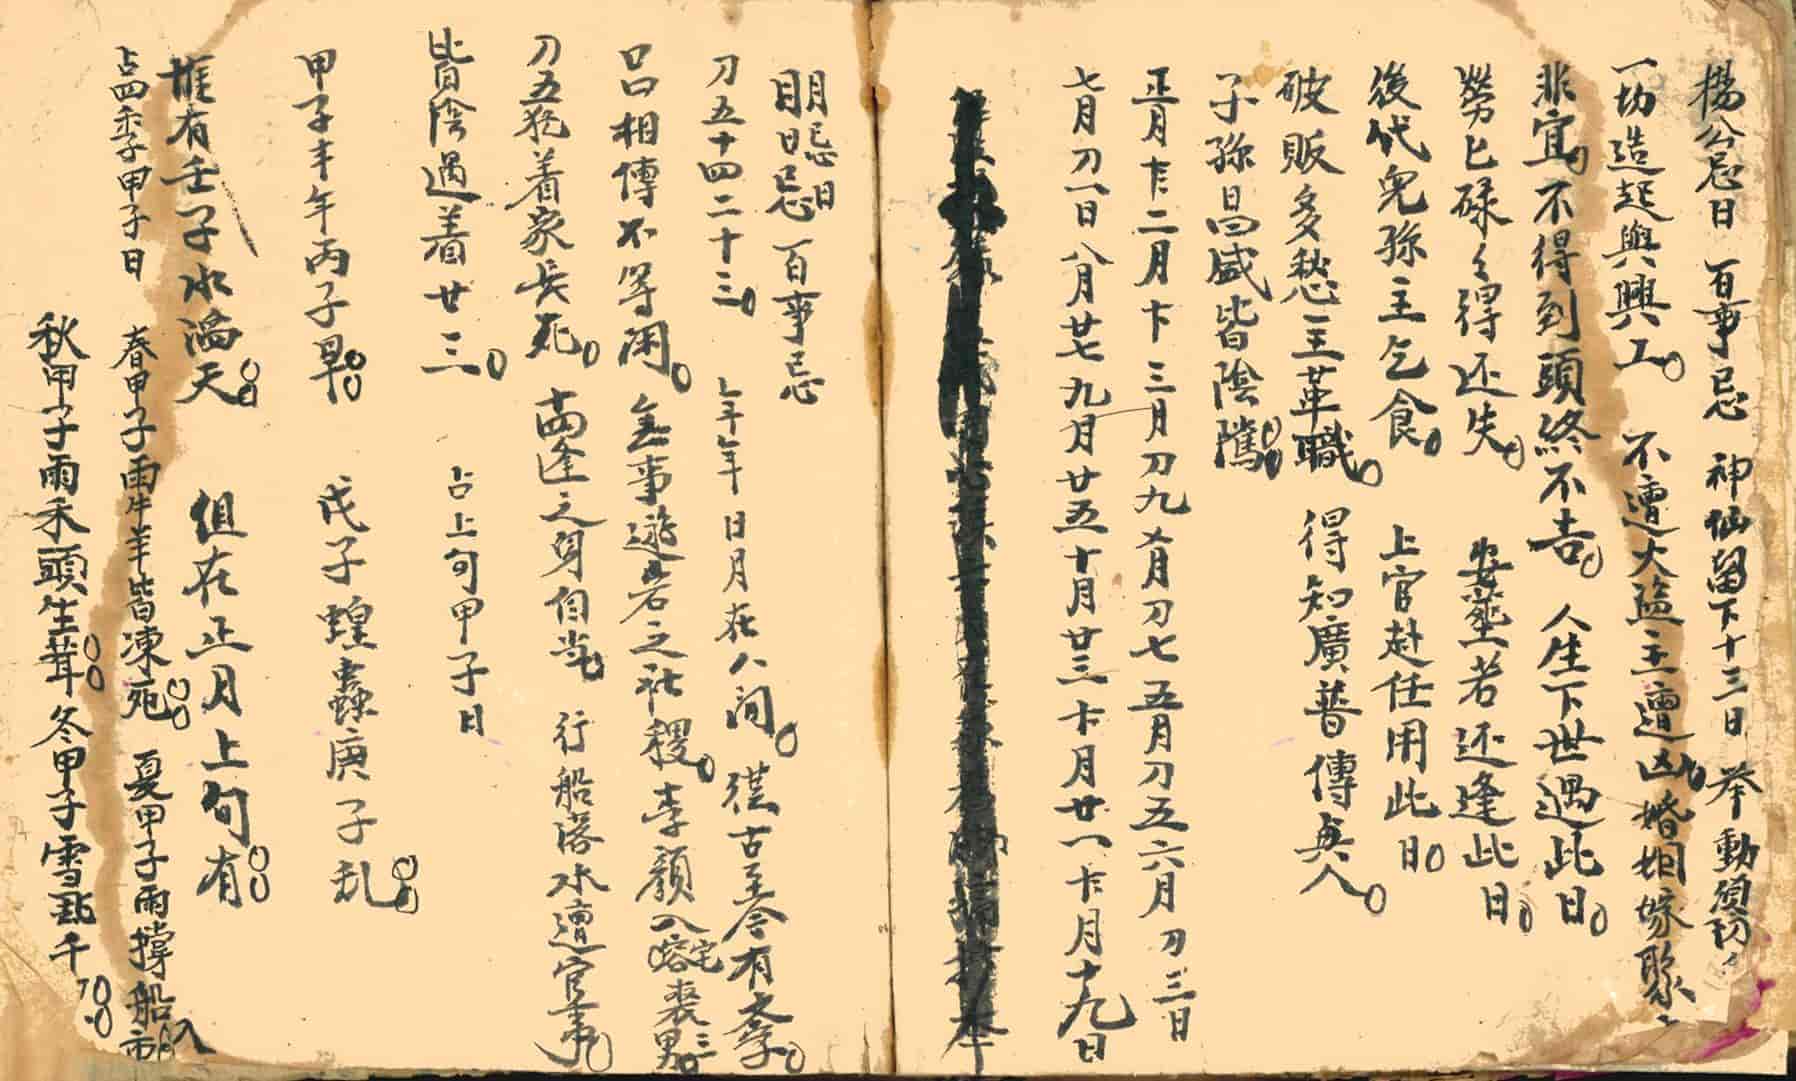 楊公忌日 百事忌 神仙留下十三日 举動須切々
一切造起與興工 不遭火盗主遭凶 婚姻嫁聚々
非宜 不得到頭終不吉 人生下世遇此日
勞匕碌々得还失 安塟若还逢此日
後代兒孫主乞食 上官赴任用此日
破販多愁主革職 得知廣普傳與人
子孫昌盛皆陰騭
正月 二月 三月刀九 月刀七 五月刀五 六月刀三日
七月刀一日 八月廿七 九月廿五 十月廿三 月廿一 月十九日
明日忌 百事忌
忌日
刀五十四二十三 年年日月在人间 從古至今有文李
吕相傳不等闲 無事遊岩之社稷 李顏入宅喪三男
刀五犯着家長死 十四逢之身自当 行船落水遭官事
皆陰遇着廿三 占上旬甲子日
甲子丰年丙子旱 戊子蝗虫庚子乱
惟有壬子水滔天 但在正月上旬有
占四季甲子日 春甲子雨牛羊皆凍死 夏甲子雨撑船入市
秋甲子雨禾頭生茸 冬甲子雪飛千